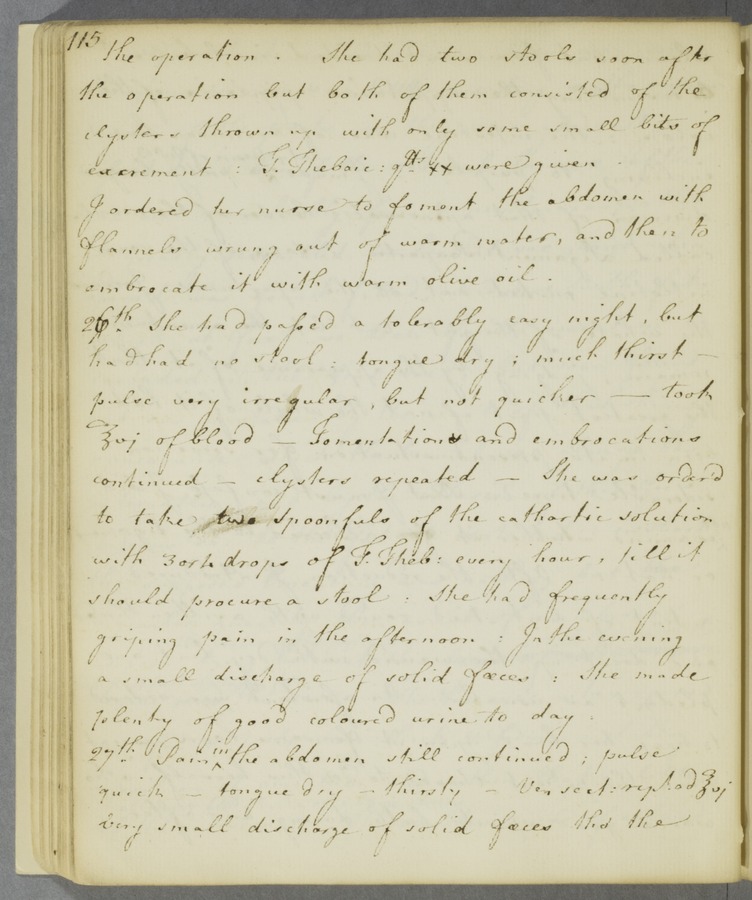 115
the operation . She had two stools soon after
the operation but both of them consisted of the
clysters thrown up with only some small bits of
excrement : T. Thebaic: gtts xx were given .
I ordered her nurse to foment the abdomen with
flannels wrung out of warm water, and then to
embrocate it with warm olive oil .
26th She had passed a tolerably easy night, but
had had no stool : tongue dry ; much thirst —
pulse very irregular, but not quicker — took
℥vj of blood — Fomentations and embrocations
continued — clysters repeated — She was order'd
to take two spoonfuls of the cathartic solution
with 3 or 4 drops of T. Theb: every hour, till it
should procure a stool : She had frequently
griping pain in the afternoon : In the evening
a small discharge of solid fæces : She made
plenty of good coloured urine to day .
27th Pain in the abdomen still continued ; pulse
quick — tongue dry — thirsty — Ven sect: rept: ad ℥vj
Very small discharge of solid fæces tho' the